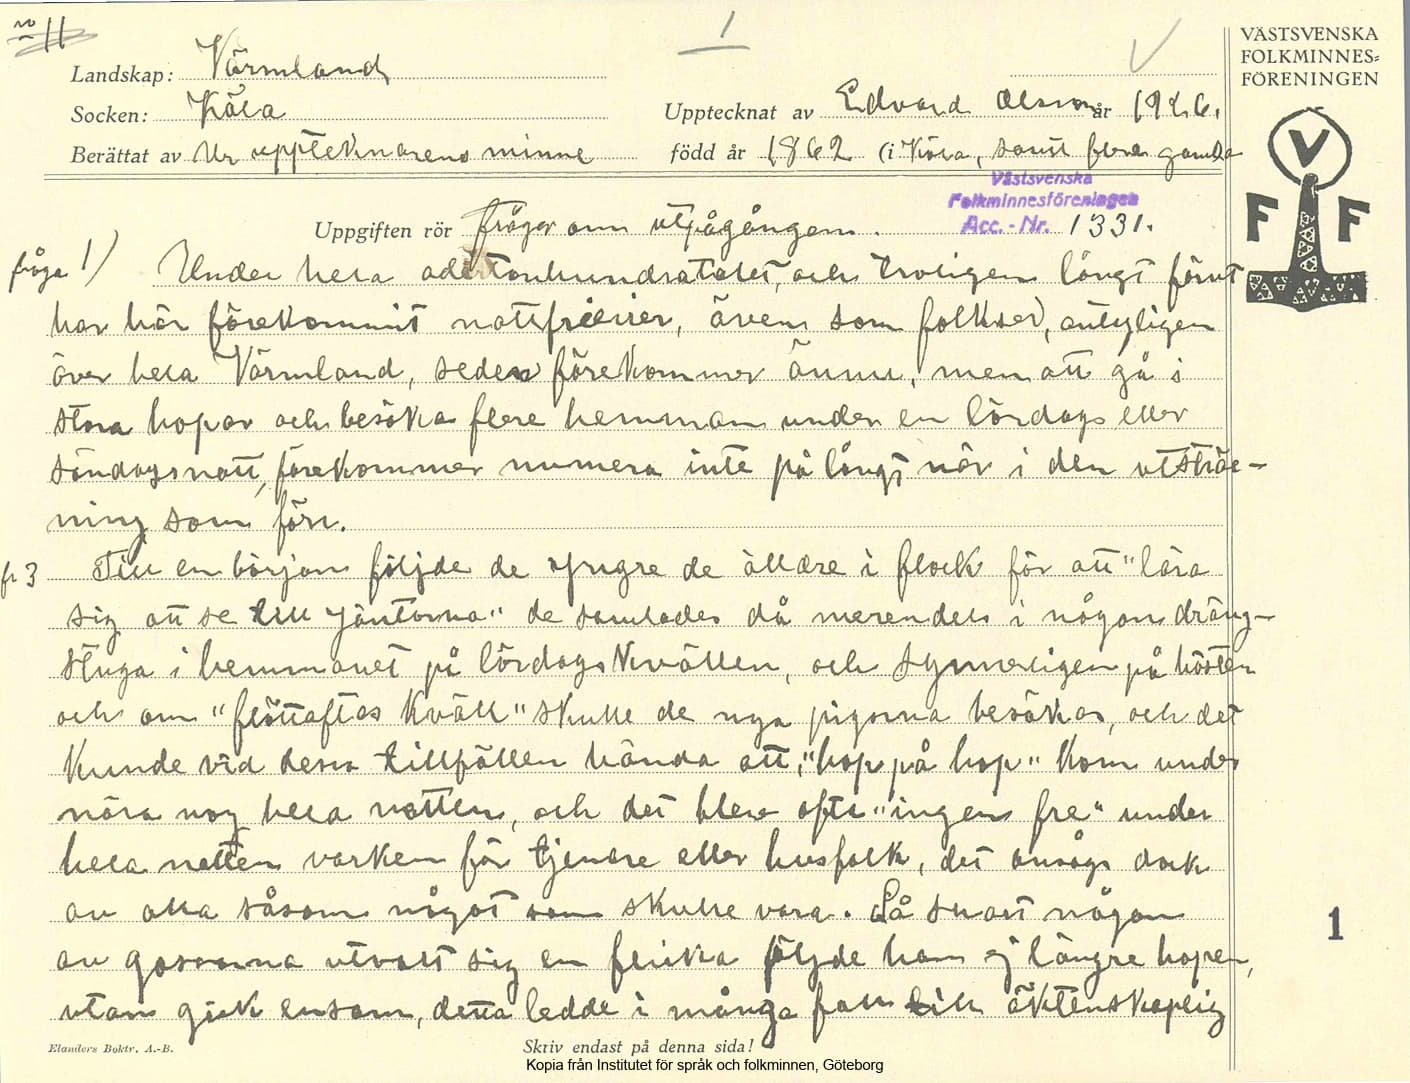 No 11
1
VÄSTSVENSKA
FOLKMINNES-
FÖRENINGEN
V
F F
Landskap: Värmland
Socken: Köla
Upptecknat av Edvard Olsson år 1926.
Berättat av Ur upptecknarens minne
född år 1862 (i Köla, samt flera gamla
Västsvenska
Folkminnesföreningen
Acc.-Nr. 1331.
Uppgiften rör frågor om utpågången.
fråga 1) Under hela adertonhundratalet, och troligen långt förut
har här förekommit nattfrieirier, även som folksed, antyligen
över hela Värmland, seden förekommer ännu, men att gå i
stora hopar och besöka flere hemman under en lördags eller
söndagsnatt, förekommer numera inte på långt när i den utsträc-
ning som förr.
fr 3 Till en början följde de yngre de äldre i flock för att "lära
sig att se till jäntorna" de samlades då merendels i någon dräng-
stuga i hemmanet på lördagskvällen, och synnerligen på hösten
och om "flöttaftas kväll" skulle de nya pigorna besökas, och det
kunde vid dessa tillfällen hända att, "hop på hop" kom under
nära nog hela natten, och det blev ofta "ingen fre" under
hela natten varken för tjenare eller husfolk, det ansågs dock
av alla såsom något som skulle vara. Så snart någon
av gossarna utvalt sig en flicka följde han ej längre hopen,
utan gick ensam, detta ledde i många fall till äktenskaplig
1
Elanders Boktr. A.-B.
Skriv endast på denna sida!
Kopia från Institutet för språk och folkminnen, Göteborg